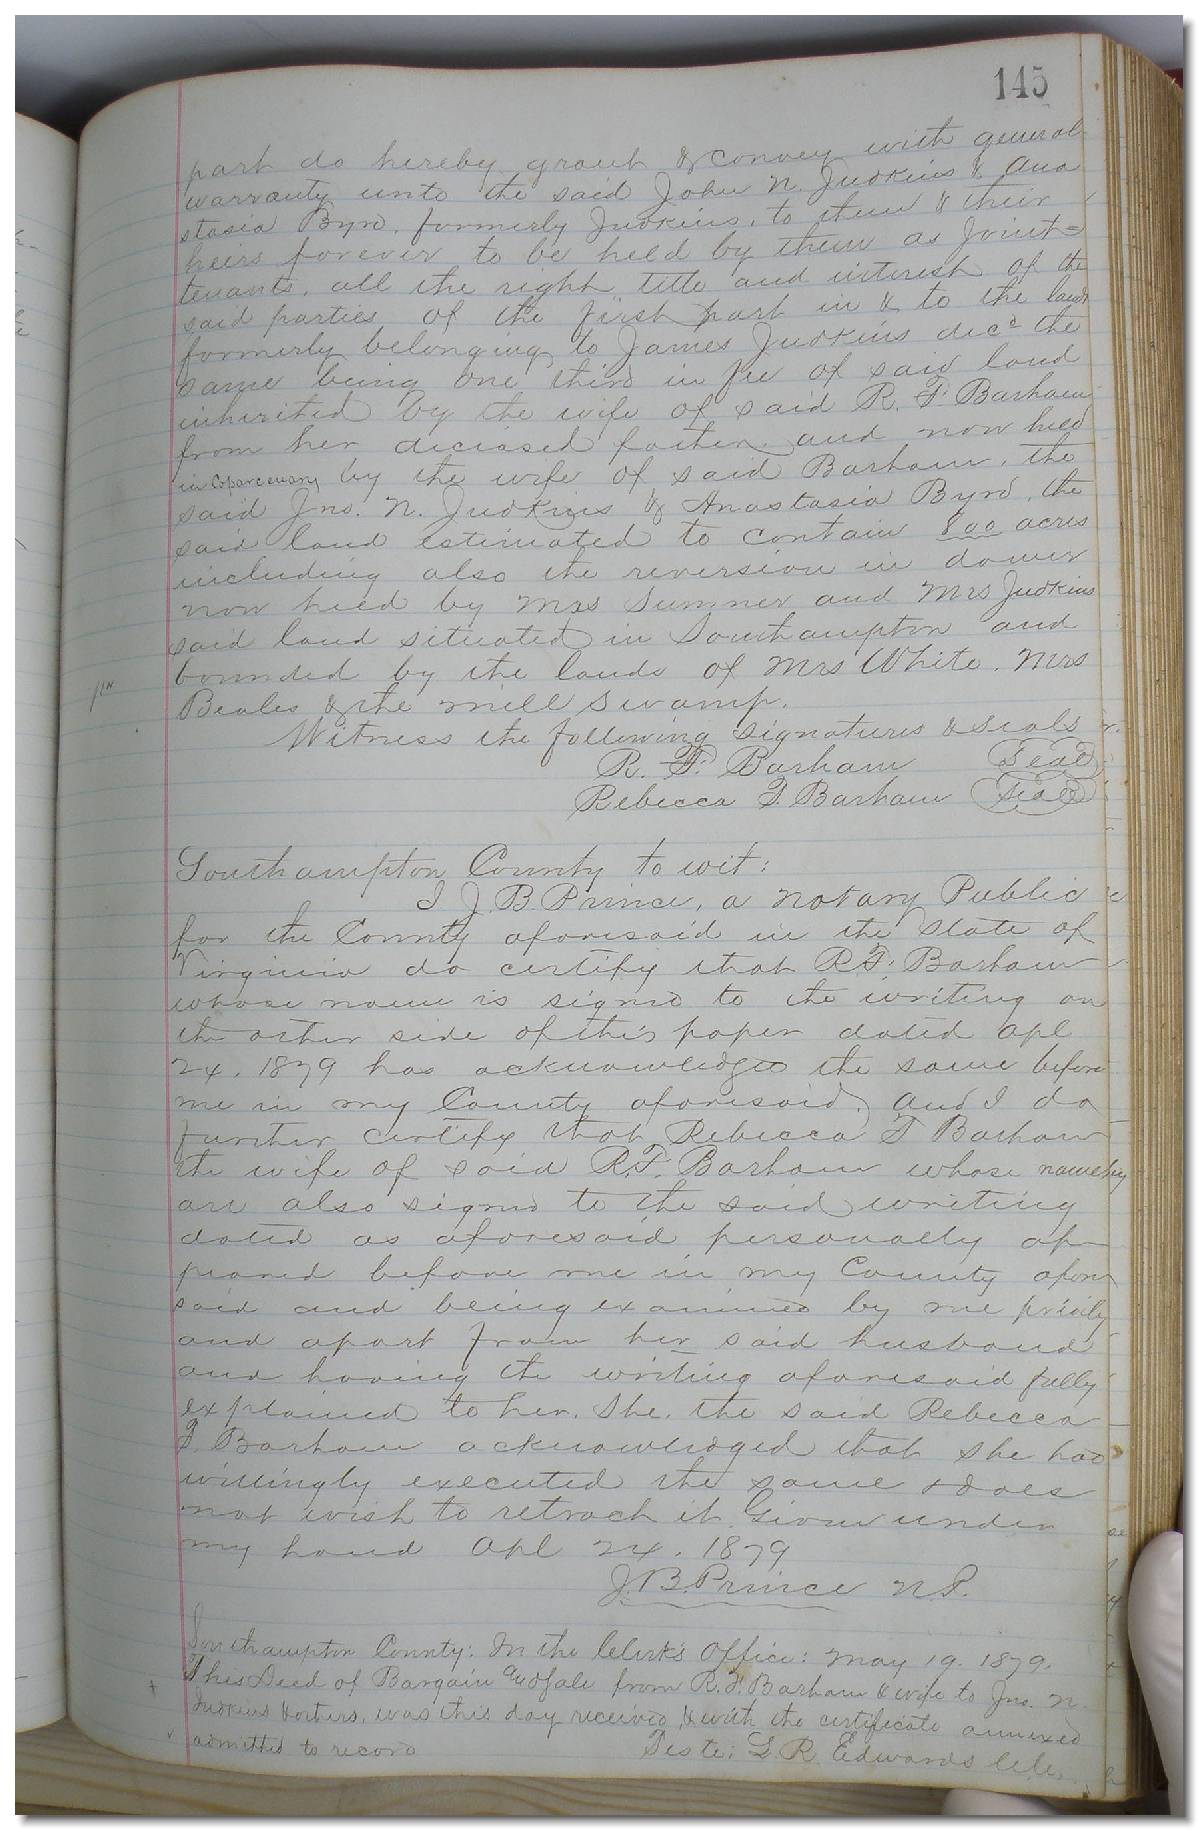 145
part do hereby grant & convey with general
warranty unto the said John N. Judkins & Ana
stasia Byrd, formerly Judkins, to them & their
heirs forever to be held by them as Joint=
tenants, all the right title and interest of the
said parties of the first part in & to the land
formerly belonging to James Judkins decd the
same being one third in fee of said land
inherited by the wife of said R. F. Barham
from her deceased father and now held
in coparcenary by the wife of said Barham, the
said Jno. N. Judkins & Anastasia Byrd, the
said land estimated to contain 800 acres
including also the reversion in dower
now held by Mrs Sumner and Mrs Judkins
said land situated in Southampton and
bounded by the lands of Mrs White. Mrs
Beales & the mill swamp.
Witness the following signatures & seals
R. F. Barham Seal
Rebecca F. Barham Seal
Southampton County to wit:
I J. B. Prince, a notary Public
for the County aforesaid in the State of
Virginia do certify that R. F. Barham
whose name is signed to the writing on
the other side of this paper dated Apl
24. 1879 has acknowledged the same before
me in my County aforesaid. And I do
further certify that Rebecca F Barham
the wife of said R. F. Barham whose names
are also signed to the said writing
dated as aforesaid personally ap-
peared before me in my County afore
said and being examined by me privily
and apart from her said husband
and having the writing aforesaid fully
explained to her. She, the said Rebecca
F. Barham acknowledged that she had
willingly executed the same & does
not wish to retract it. Given under
my hand Apl 24. 1879
J. B. Prince N.P.
Southampton County: In the Clerk's Office: May 19. 1879.
This Deed of Bargain and Sale from R. F. Barham & wife to Jno. N.
Judkins & others, was this day received, & with the certificate annexed
admitted to record Teste: L. R. Edwards Clk.